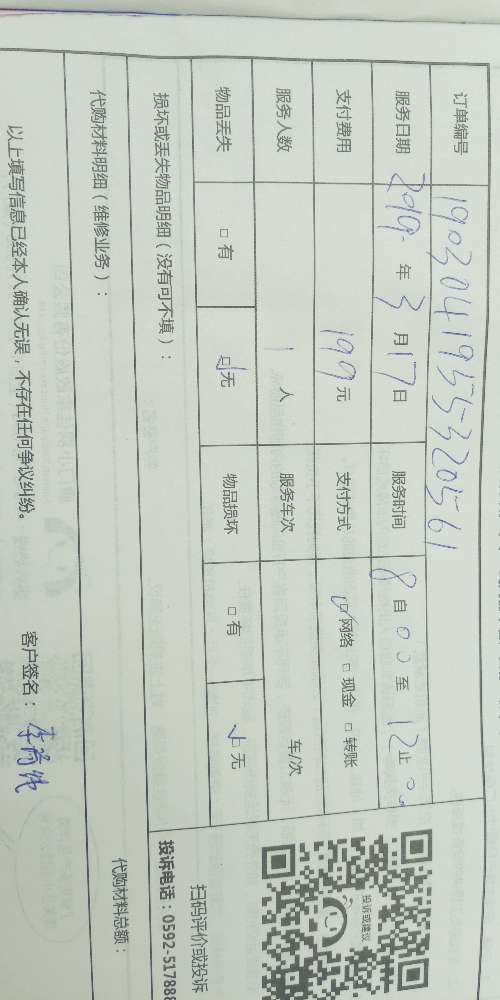 订单编号 1903041955320561
服务日期 2019年3月17日 服务时间 8自00至12止00
支付费用 199元 支付方式 ☑网络 □现金 □转账
服务人数 1人 服务车次 车/次
物品丢失 □有 ☑无 物品损坏 □有 ☑无
损坏或丢失物品明细（没有可不填）：
代购材料明细（维修业务）： 代购材料总额：
以上填写信息已经本人确认无误，不存在任何争议纠纷。 客户签名：
投诉或建议
扫码评价或投诉
投诉电话：0592-517888